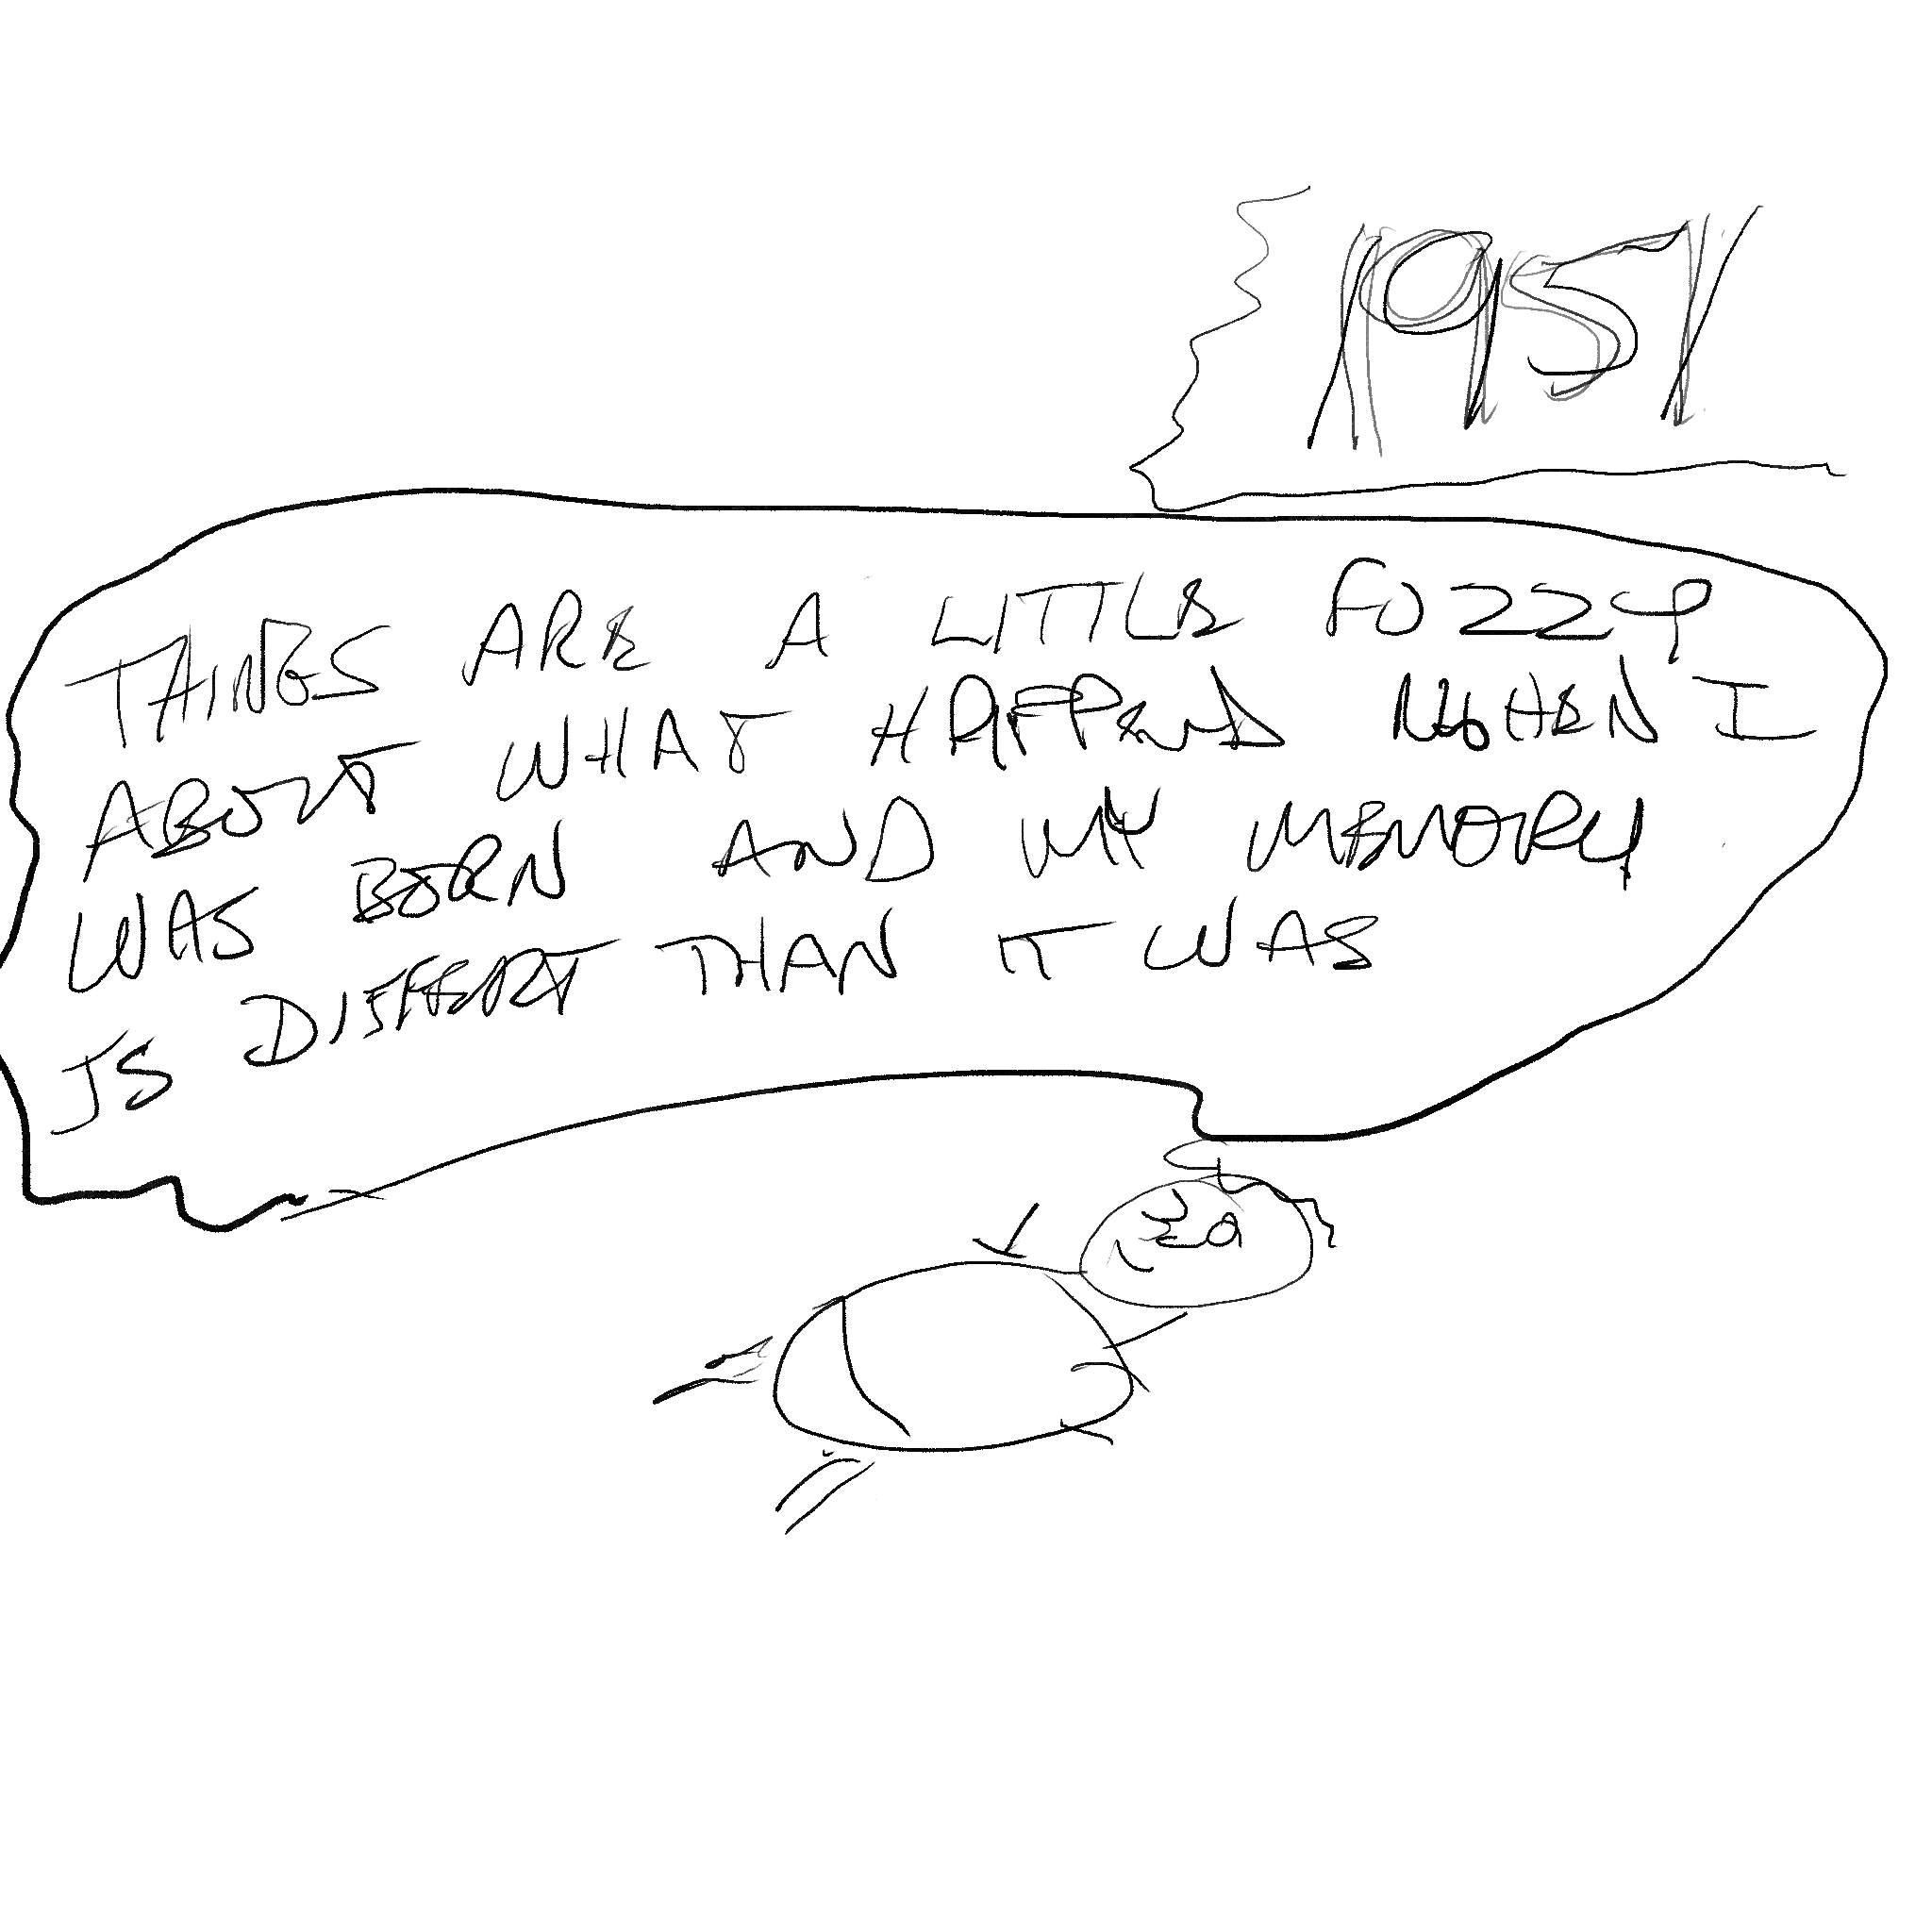 1951
THINGS ARE A LITTLE FUZZY
ABOUT WHAT HAPPEND WHEN I
WAS BORN AND MY MEMORY
IS DIFFERT THAN IT WAS